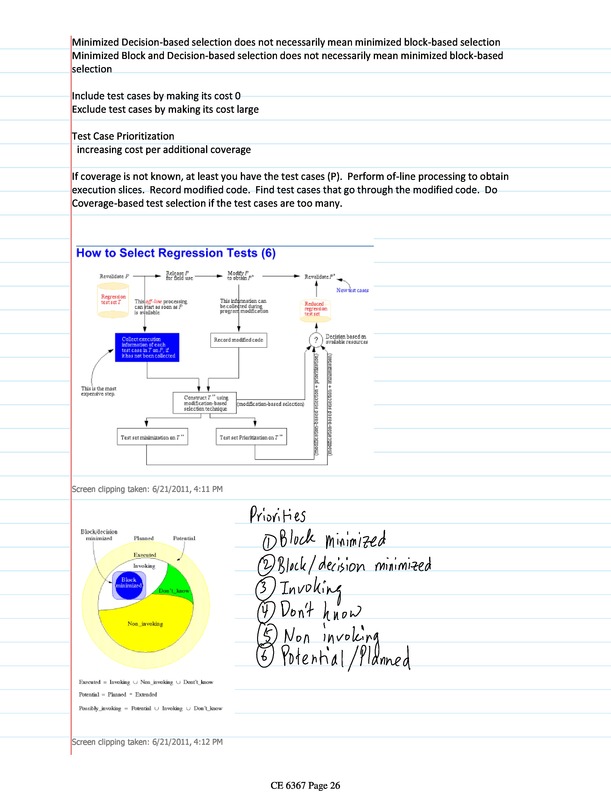 Minimized Decision-based selection does not necessarily mean minimized block-based selection
Minimized Block and Decision-based selection does not necessarily mean minimized block-based
selection
Include test cases by making its cost 0
Exclude test cases by making its cost large
Test Case Prioritization
increasing cost per additional coverage
If coverage is not known, at least you have the test cases (P). Perform of-line processing to obtain
execution slices. Record modified code. Find test cases that go through the modified code. Do
Coverage-based test selection if the test cases are too many.
How to Select Regression Tests (6)
Revalidate P
Release P
for field use
Modify P
to obtain P'
Revalidate P'
New test cases
Regression
test set T
This off-line processing
can start as soon as P
is available
This information can
be collected during
program modification
Reduced
regression
test set
Collect execution
information of each
test case in T on P, if
it has not been collected
Record modified code
?
Decision based on
available resources
This is the most
expensive step.
Construct T'' using
modification-based
selection technique
(modification-based selection)
Test set minimization on T''
Test set Prioritization on T''
Screen clipping taken: 6/21/2011, 4:11 PM
Priorities
① Block minimized
② Block/decision minimized
③ Invoking
④ Don't know
⑤ Non invoking
⑥ Potential/Planned
Block/decision
minimized
Planned
Potential
Executed
Invoking
Block
minimized
Don't_know
Non_invoking
Executed = Invoking ∪ Non_invoking ∪ Don't_know
Potential = Planned - Extended
Possibly_invoking = Potential ∪ Invoking ∪ Don't_know
Screen clipping taken: 6/21/2011, 4:12 PM
CE 6367 Page 26